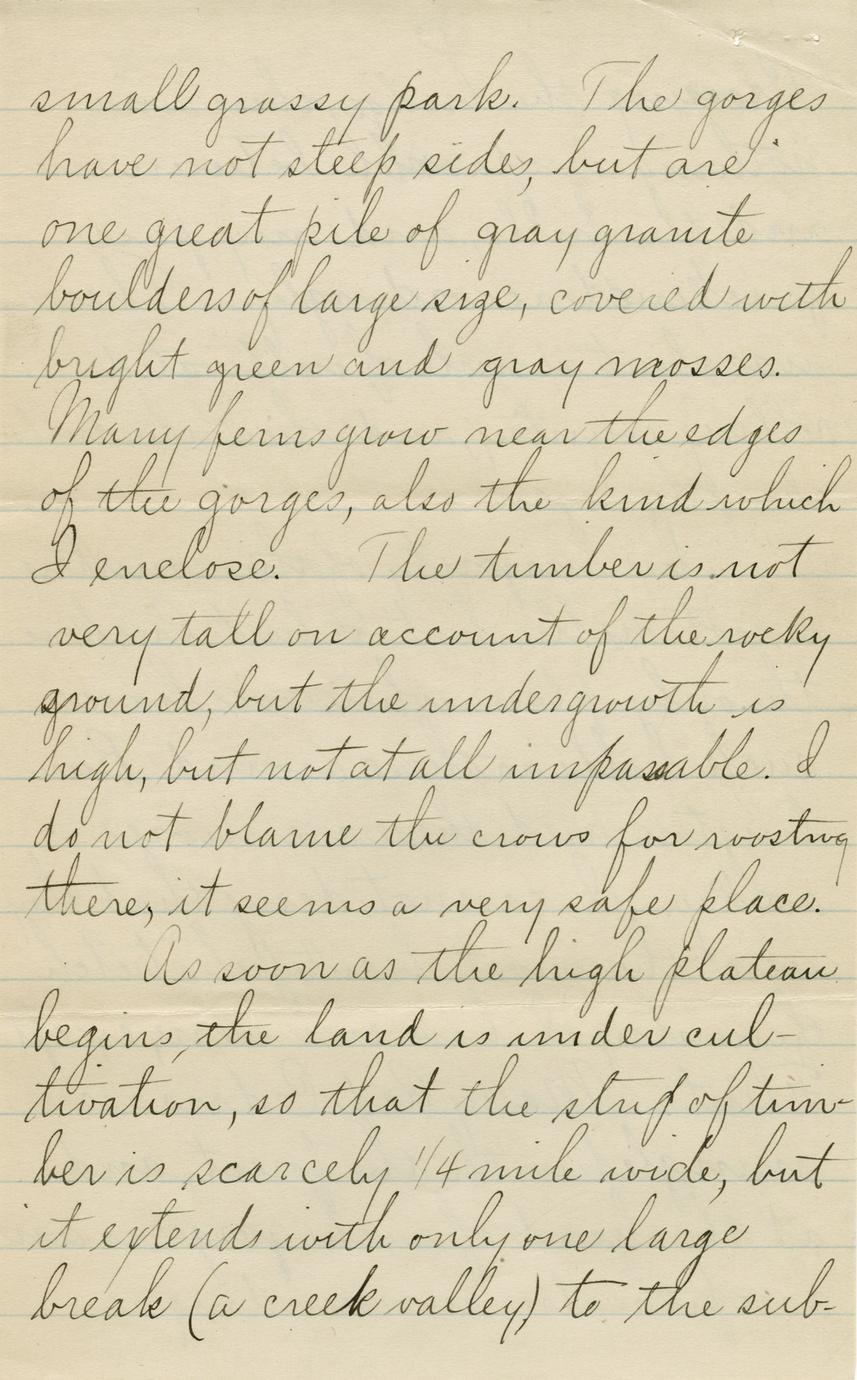 small grassy park. The gorges
have not steep sides, but are
one great pile of gray granite
boulders of large size, covered with
bright green and gray mosses.
Many ferns grow near the edges
of the gorges, also the kind which
I enclose. The timber is not
very tall on account of the rocky
ground, but the undergrowth is
high, but not at all impassable. I
do not blame the crows for roosting
there, it seems a very safe place.
As soon as the high plateau
begins, the land is under cul-
tivation, so that the strip of tim-
ber is scarcely 1/4 mile wide, but
it extends with only one large
break (a creek valley) to the sub-